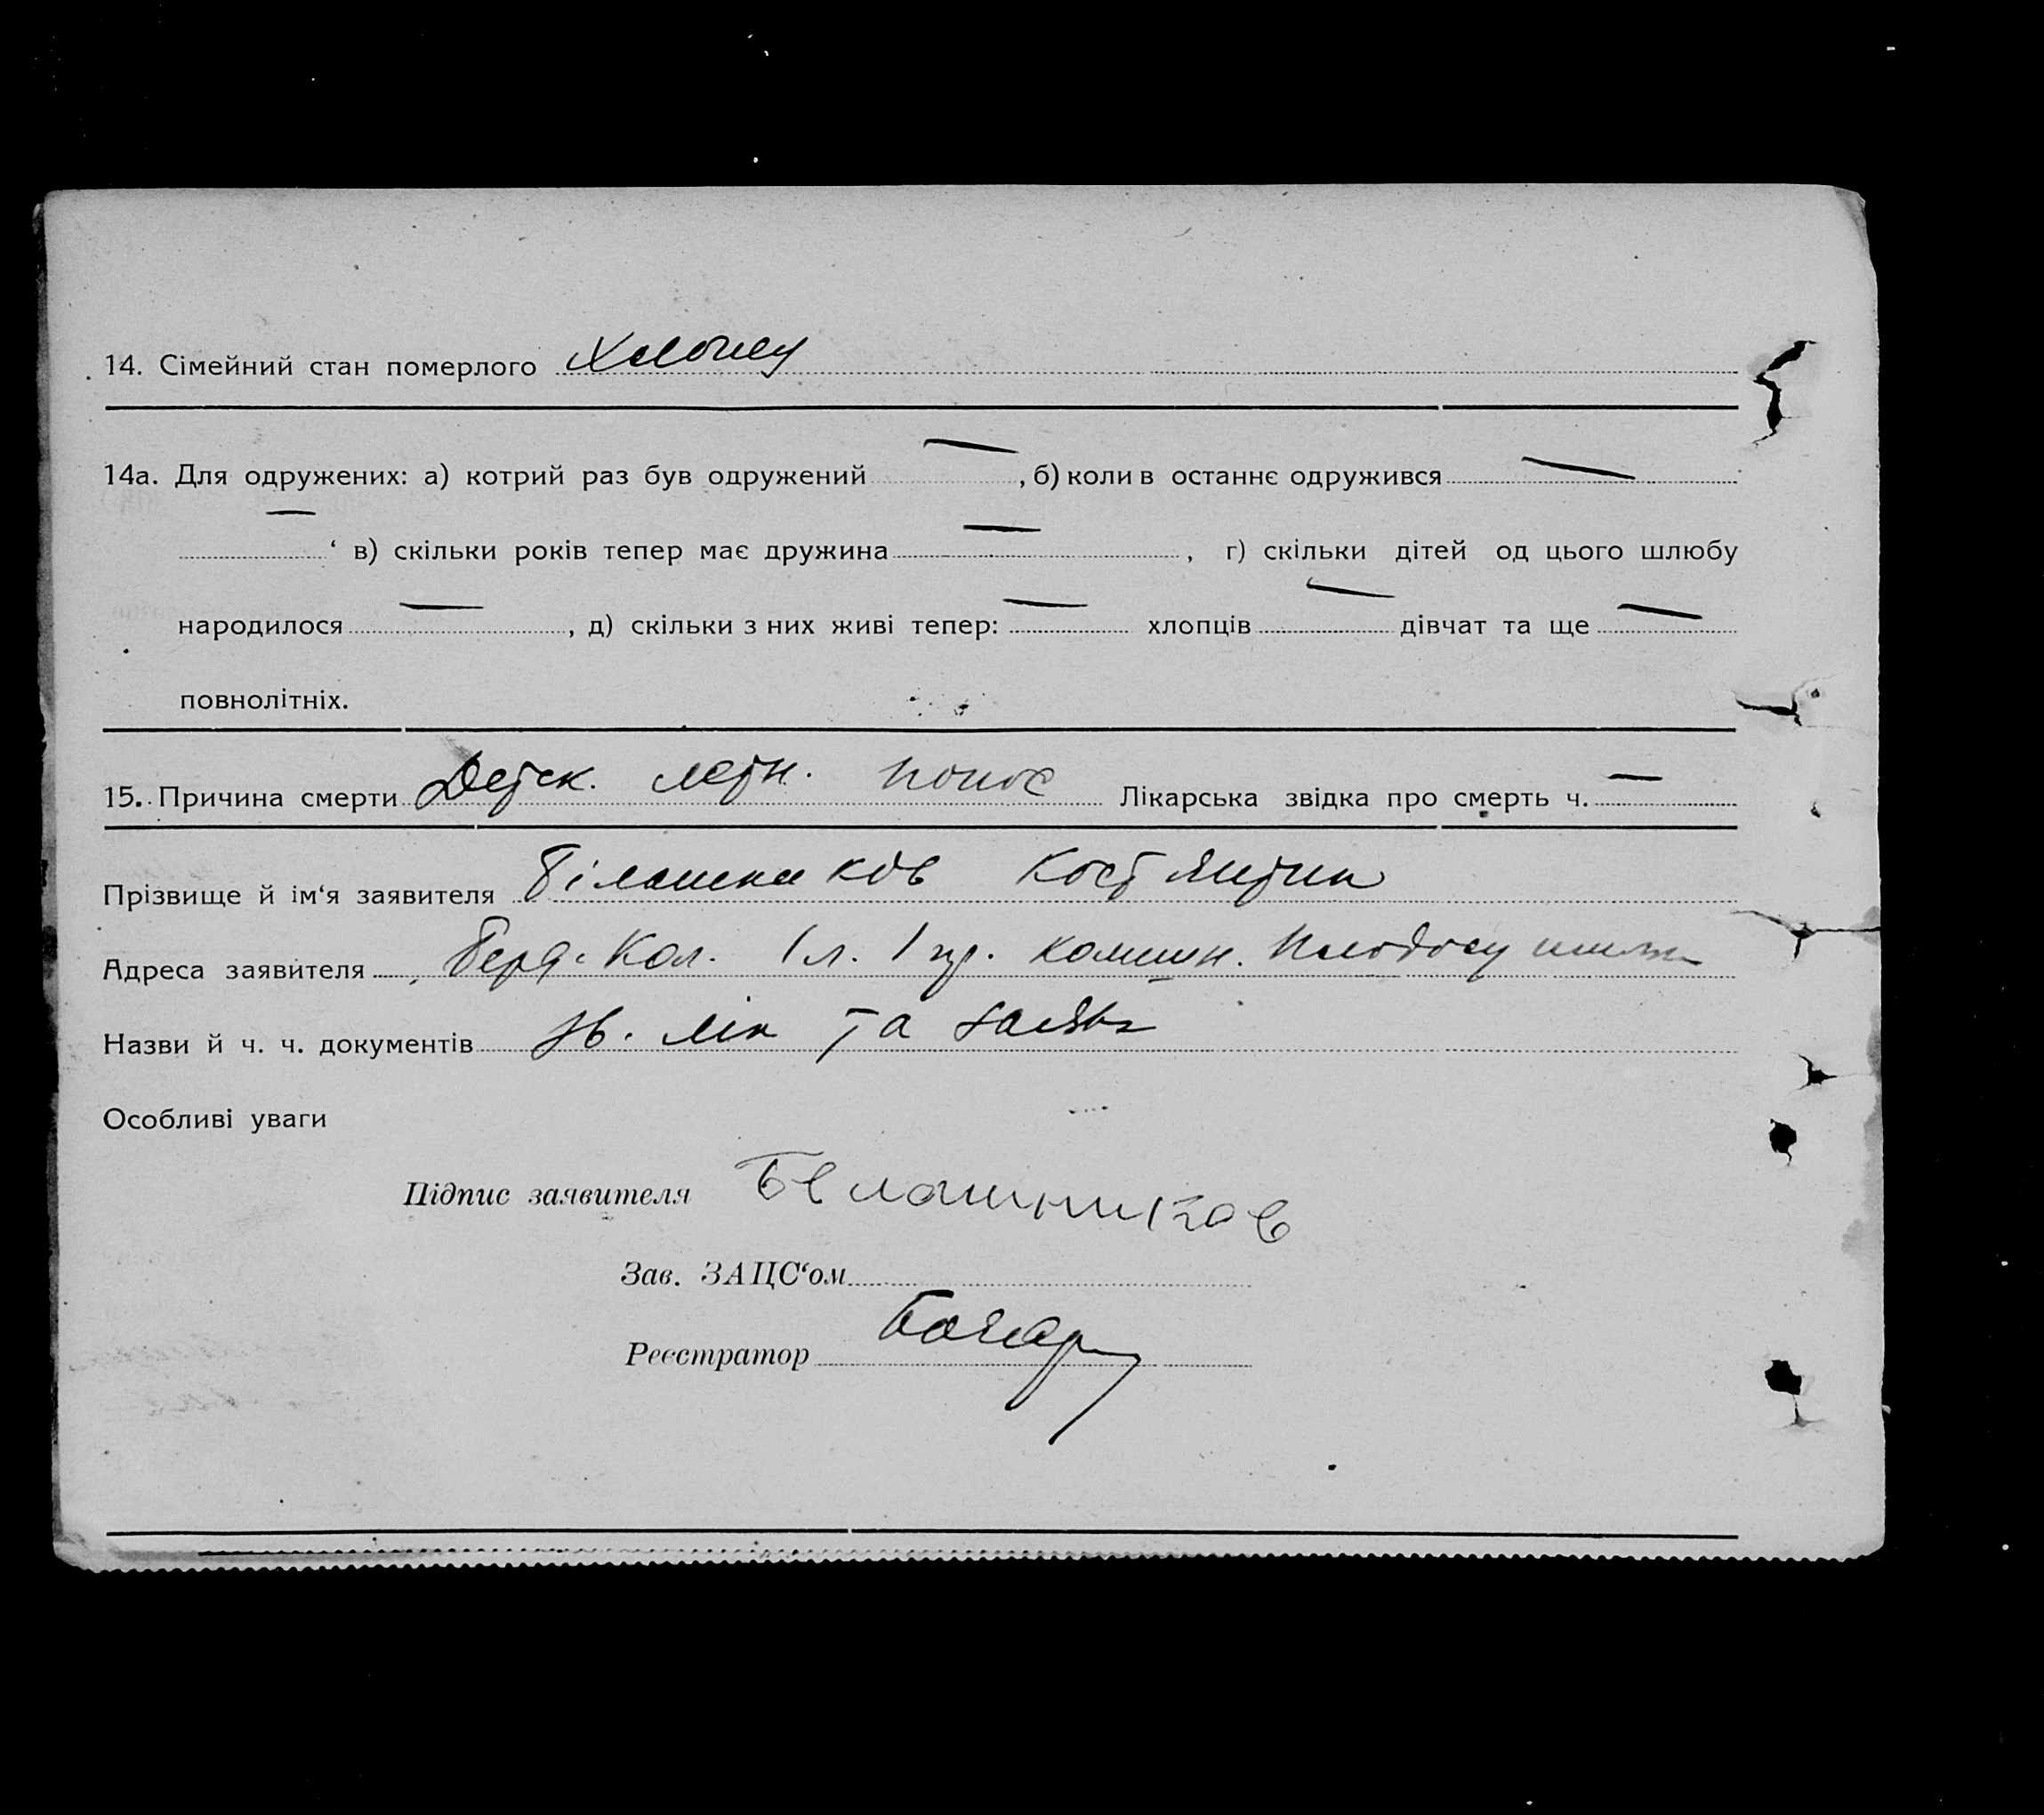 14. Сімейний стан померлого Хлопец
14а. Для одружених: а) котрий раз був одружений — , б) коли в останнє одружився —
— ‘ в) скільки років тепер має дружина — , г) скільки дітей од цього шлюбу
народилося — , д) скільки з них живі тепер: — хлопців — дівчат та ще —
повнолітніх.
15. Причина смерти Детск. летн. понос Лікарська звідка про смерть ч. —
Прізвище й ім‘я заявителя Білашников Костянтин
Адреса заявителя Берд. Кол. 1 л. 1 гр.
Назви й ч. ч. документів зв. лік та заява
Особливі уваги
Підпис заявителя Белашников
Зав. ЗАЦС‘ом
Реєстратор